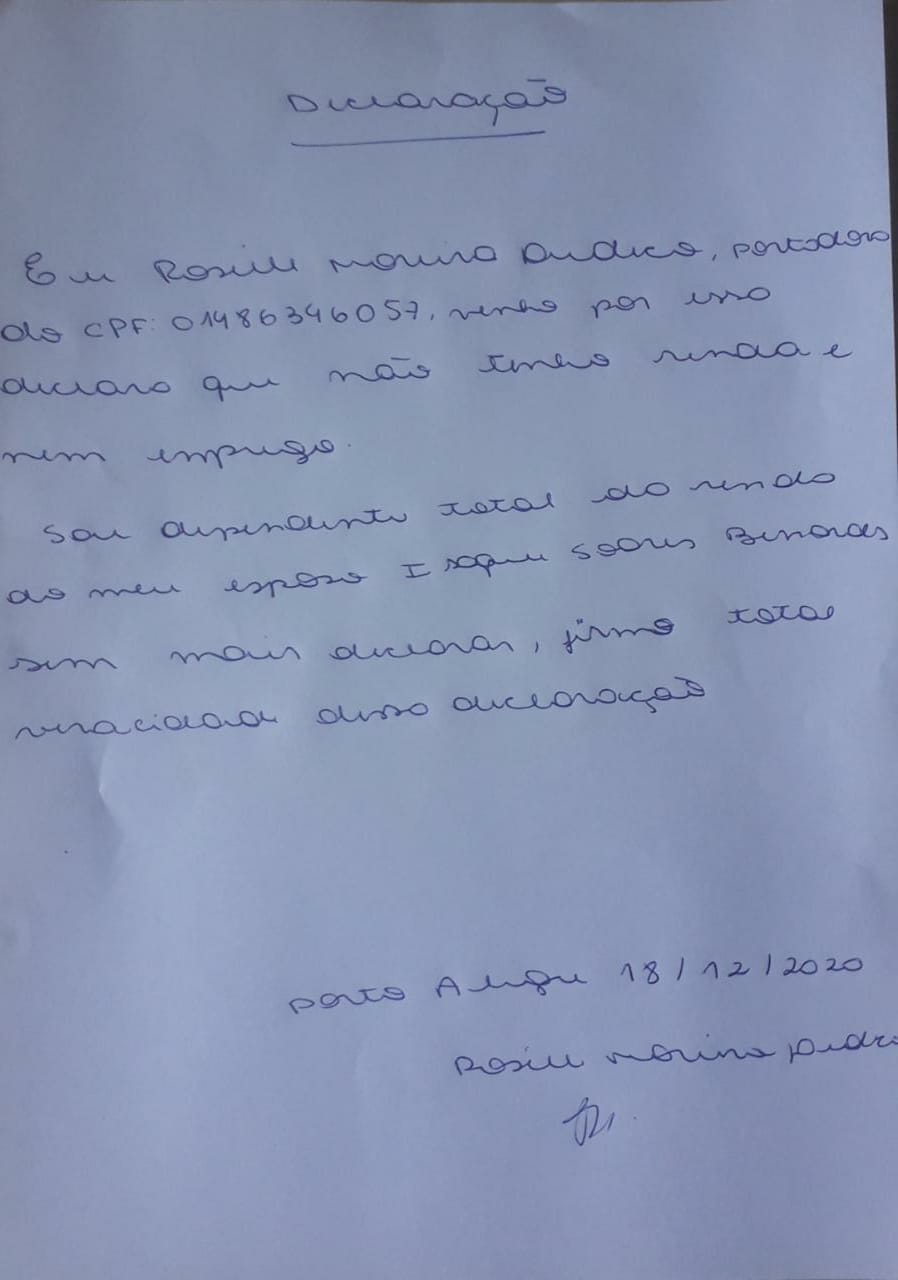 Declaração
Eu Rosieli Marina Pedra, portadora
do CPF: 01486346057, venho por isso
declaro que não tenho renda e
nem emprego.
Sou dependente total da renda
do meu esposo Isaque Soares
sem mais declarar, firmo total
veracidade dessa declaração
Porto Alegre 18/12/2020
Marina